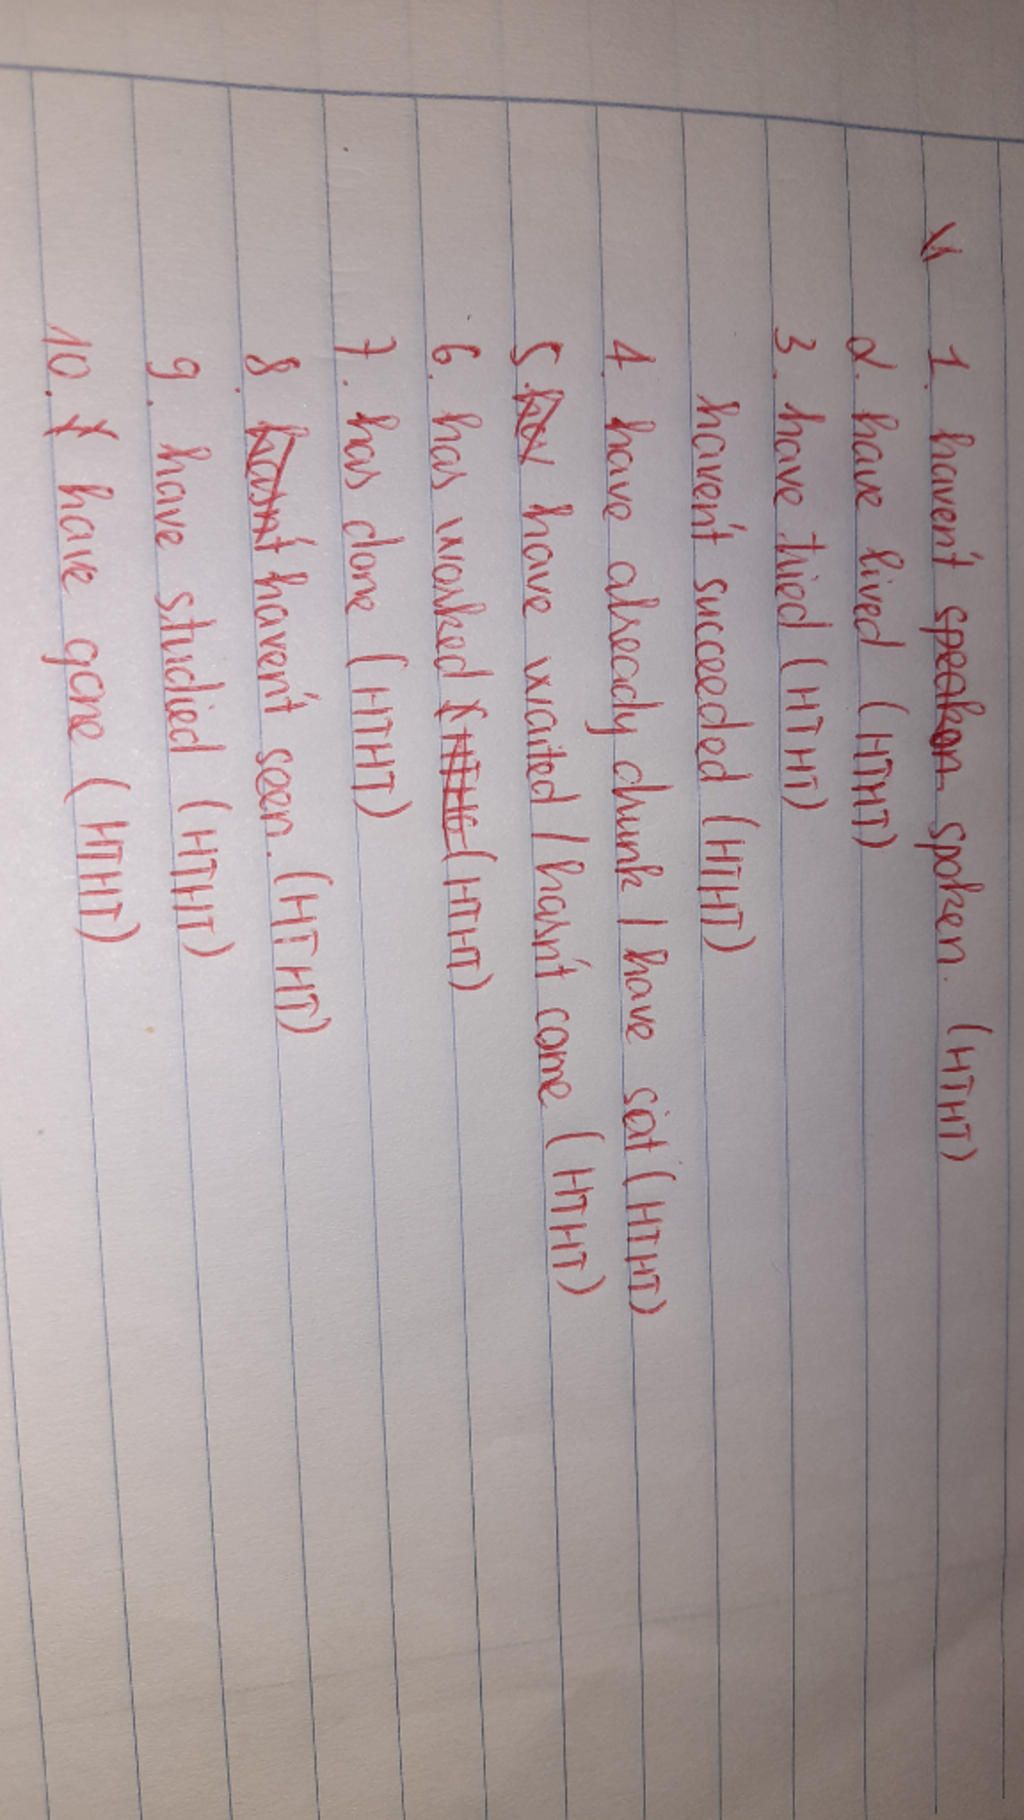 V 1. haven't speaken spoken. (HTHT)
2. have lived (HTHT)
3. have tried (HTHT)
haven't succeeded (HTHT)
4. have already drunk / have sat (HTHT)
5. hav have waited / hasn't come (HTHT)
6. has worked (HTHT)
7. has done (HTHT)
8. hasn't haven't seen. (HTHT)
9. have studied (HTHT)
10. have gone (HTHT)